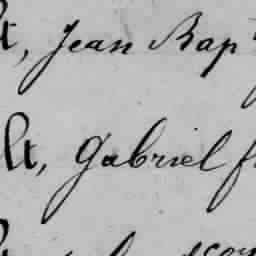 t, Jean Bap
lt, Gabriel f